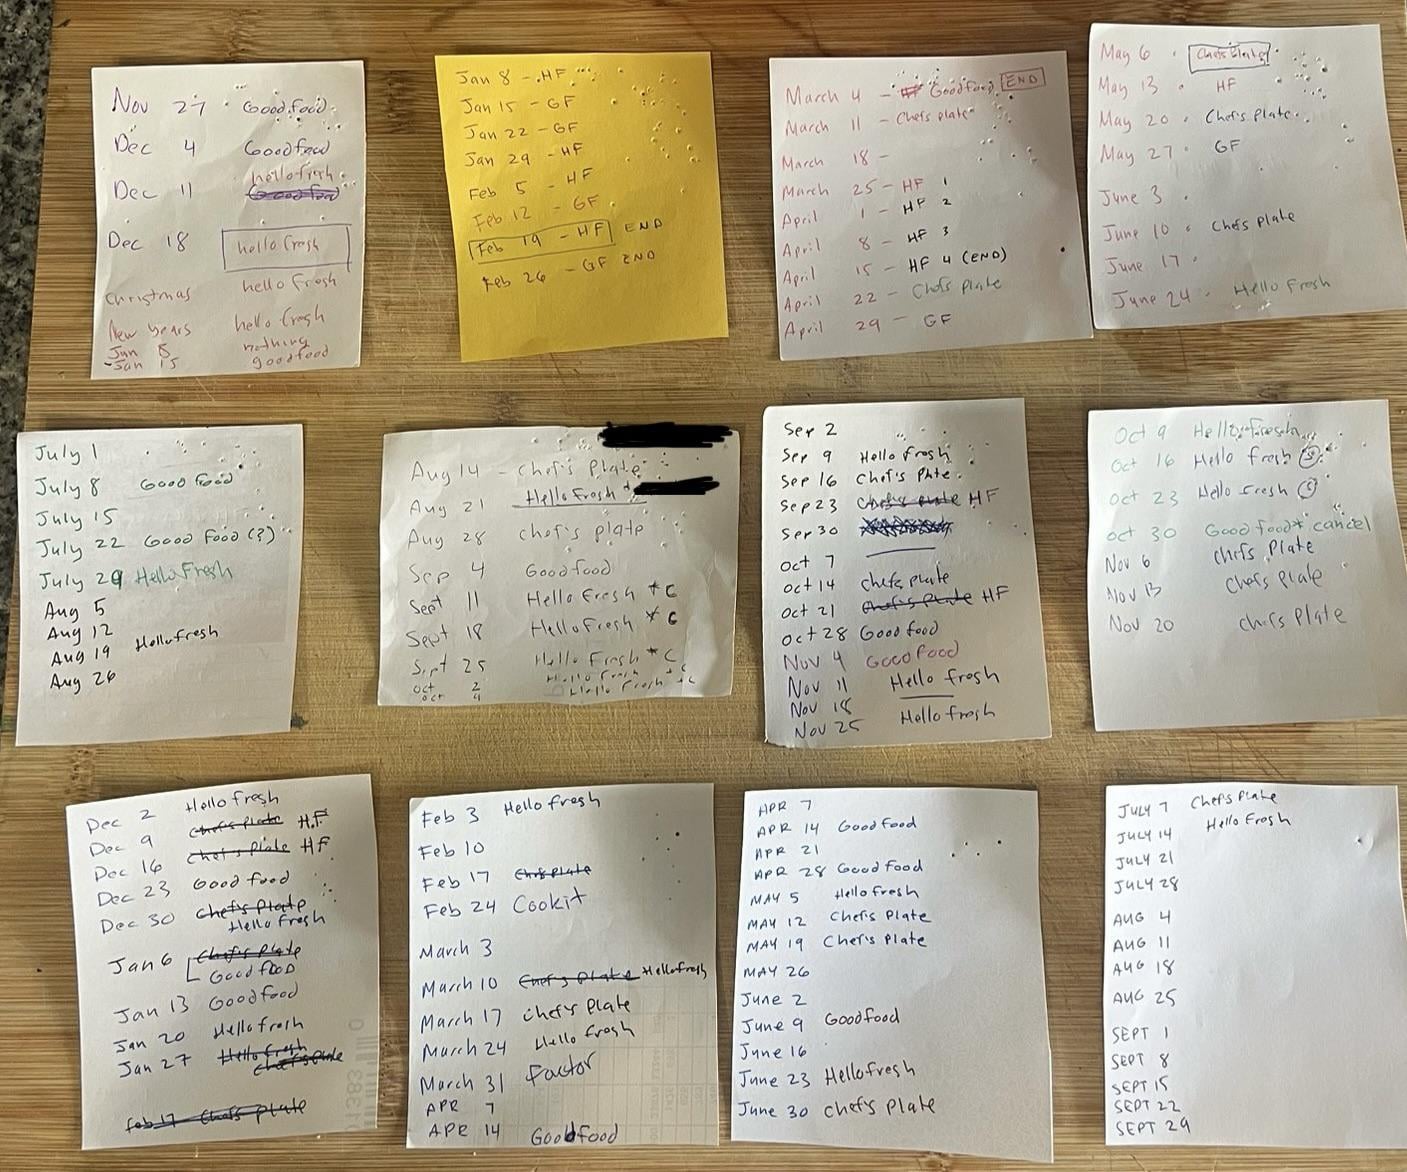 Nov 27 · Goodfood
Dec 4 Goodfood
hellofresh
Dec 11 Goodfood
Dec 18 hello fresh
Christmas hello fresh
New years hello fresh
Jan 8 nothing
Jan 15 goodfood
Jan 8 - HF
Jan 15 - GF
Jan 22 - GF
Jan 29 - HF
Feb 5 - HF
Feb 12 - GF
Feb 19 - HF END
Feb 26 - GF END
March 4 - HF Goodfood END
March 11 - Chefs plate
March 18 -
March 25 - HF 1
April 1 - HF 2
April 8 - HF 3
April 15 - HF 4 (END)
April 22 - Chefs plate
April 29 - GF
May 6 · Chefs Plate
May 13 · HF
May 20 · Chefs Plate
May 27 · GF
June 3 ·
June 10 · Chefs plate
June 17 ·
June 24 · Hello Fresh
July 1
July 8 Good food
July 15
July 22 Good Food (?)
July 29 Hello Fresh
Aug 5
Aug 12
Aug 19 Hellofresh
Aug 26
Aug 14 - chef's plate
Aug 21 Hello Fresh *
Aug 28 chef's plate
Sep 4 Goodfood
Sept 11 Hello Fresh * C
Sept 18 Hello Fresh * C
Sept 25 Hello Fresh * C
Oct 2 Hello Fresh
Oct 9 Hello Fresh * C
Sep 2
Sep 9 Hello fresh
Sep 16 Chef's Plate
Sep 23 Chef's plate HF
Sep 30
Oct 7
Oct 14 chefs plate
Oct 21 Chef's Plate HF
Oct 28 Good food
Nov 4 Good food
Nov 11 Hello fresh
Nov 18
Nov 25 Hello fresh
Oct 9 Hello fresh
Oct 16 Hello fresh
Oct 23 Hello fresh
Oct 30 Good food* cancel
Nov 6 chefs Plate
Nov 13 chefs plate
Nov 20 chefs plate
Dec 2 Hello fresh
Dec 9 Chefs plate HF
Dec 16 Chef's Plate HF
Dec 23 Good food
Dec 30 Chef's Plate
Hello fresh
Jan 6 Chef's Plate
Good food
Jan 13 Goodfood
Jan 20 Hellofresh
Jan 27 Hello fresh
chef's plate
feb 17 Chefs plate
Feb 3 Hello fresh
Feb 10
Feb 17 Chefs plate
Feb 24 Cookit
March 3
March 10 Chef's Plate Hellofresh
March 17 chef's Plate
March 24 Hello fresh
March 31 Factor
APR 7
APR 14 Goodfood
APR 7
APR 14 Goodfood
APR 21
APR 28 Good food
MAY 5 Hello fresh
MAY 12 Chef's Plate
MAY 19 Chef's Plate
MAY 26
June 2
June 9 Goodfood
June 16
June 23 Hellofresh
June 30 chef's plate
JULY 7 Chef's Plate
JULY 14 Hello Fresh
JULY 21
JULY 28
AUG 4
AUG 11
AUG 18
AUG 25
SEPT 1
SEPT 8
SEPT 15
SEPT 22
SEPT 29